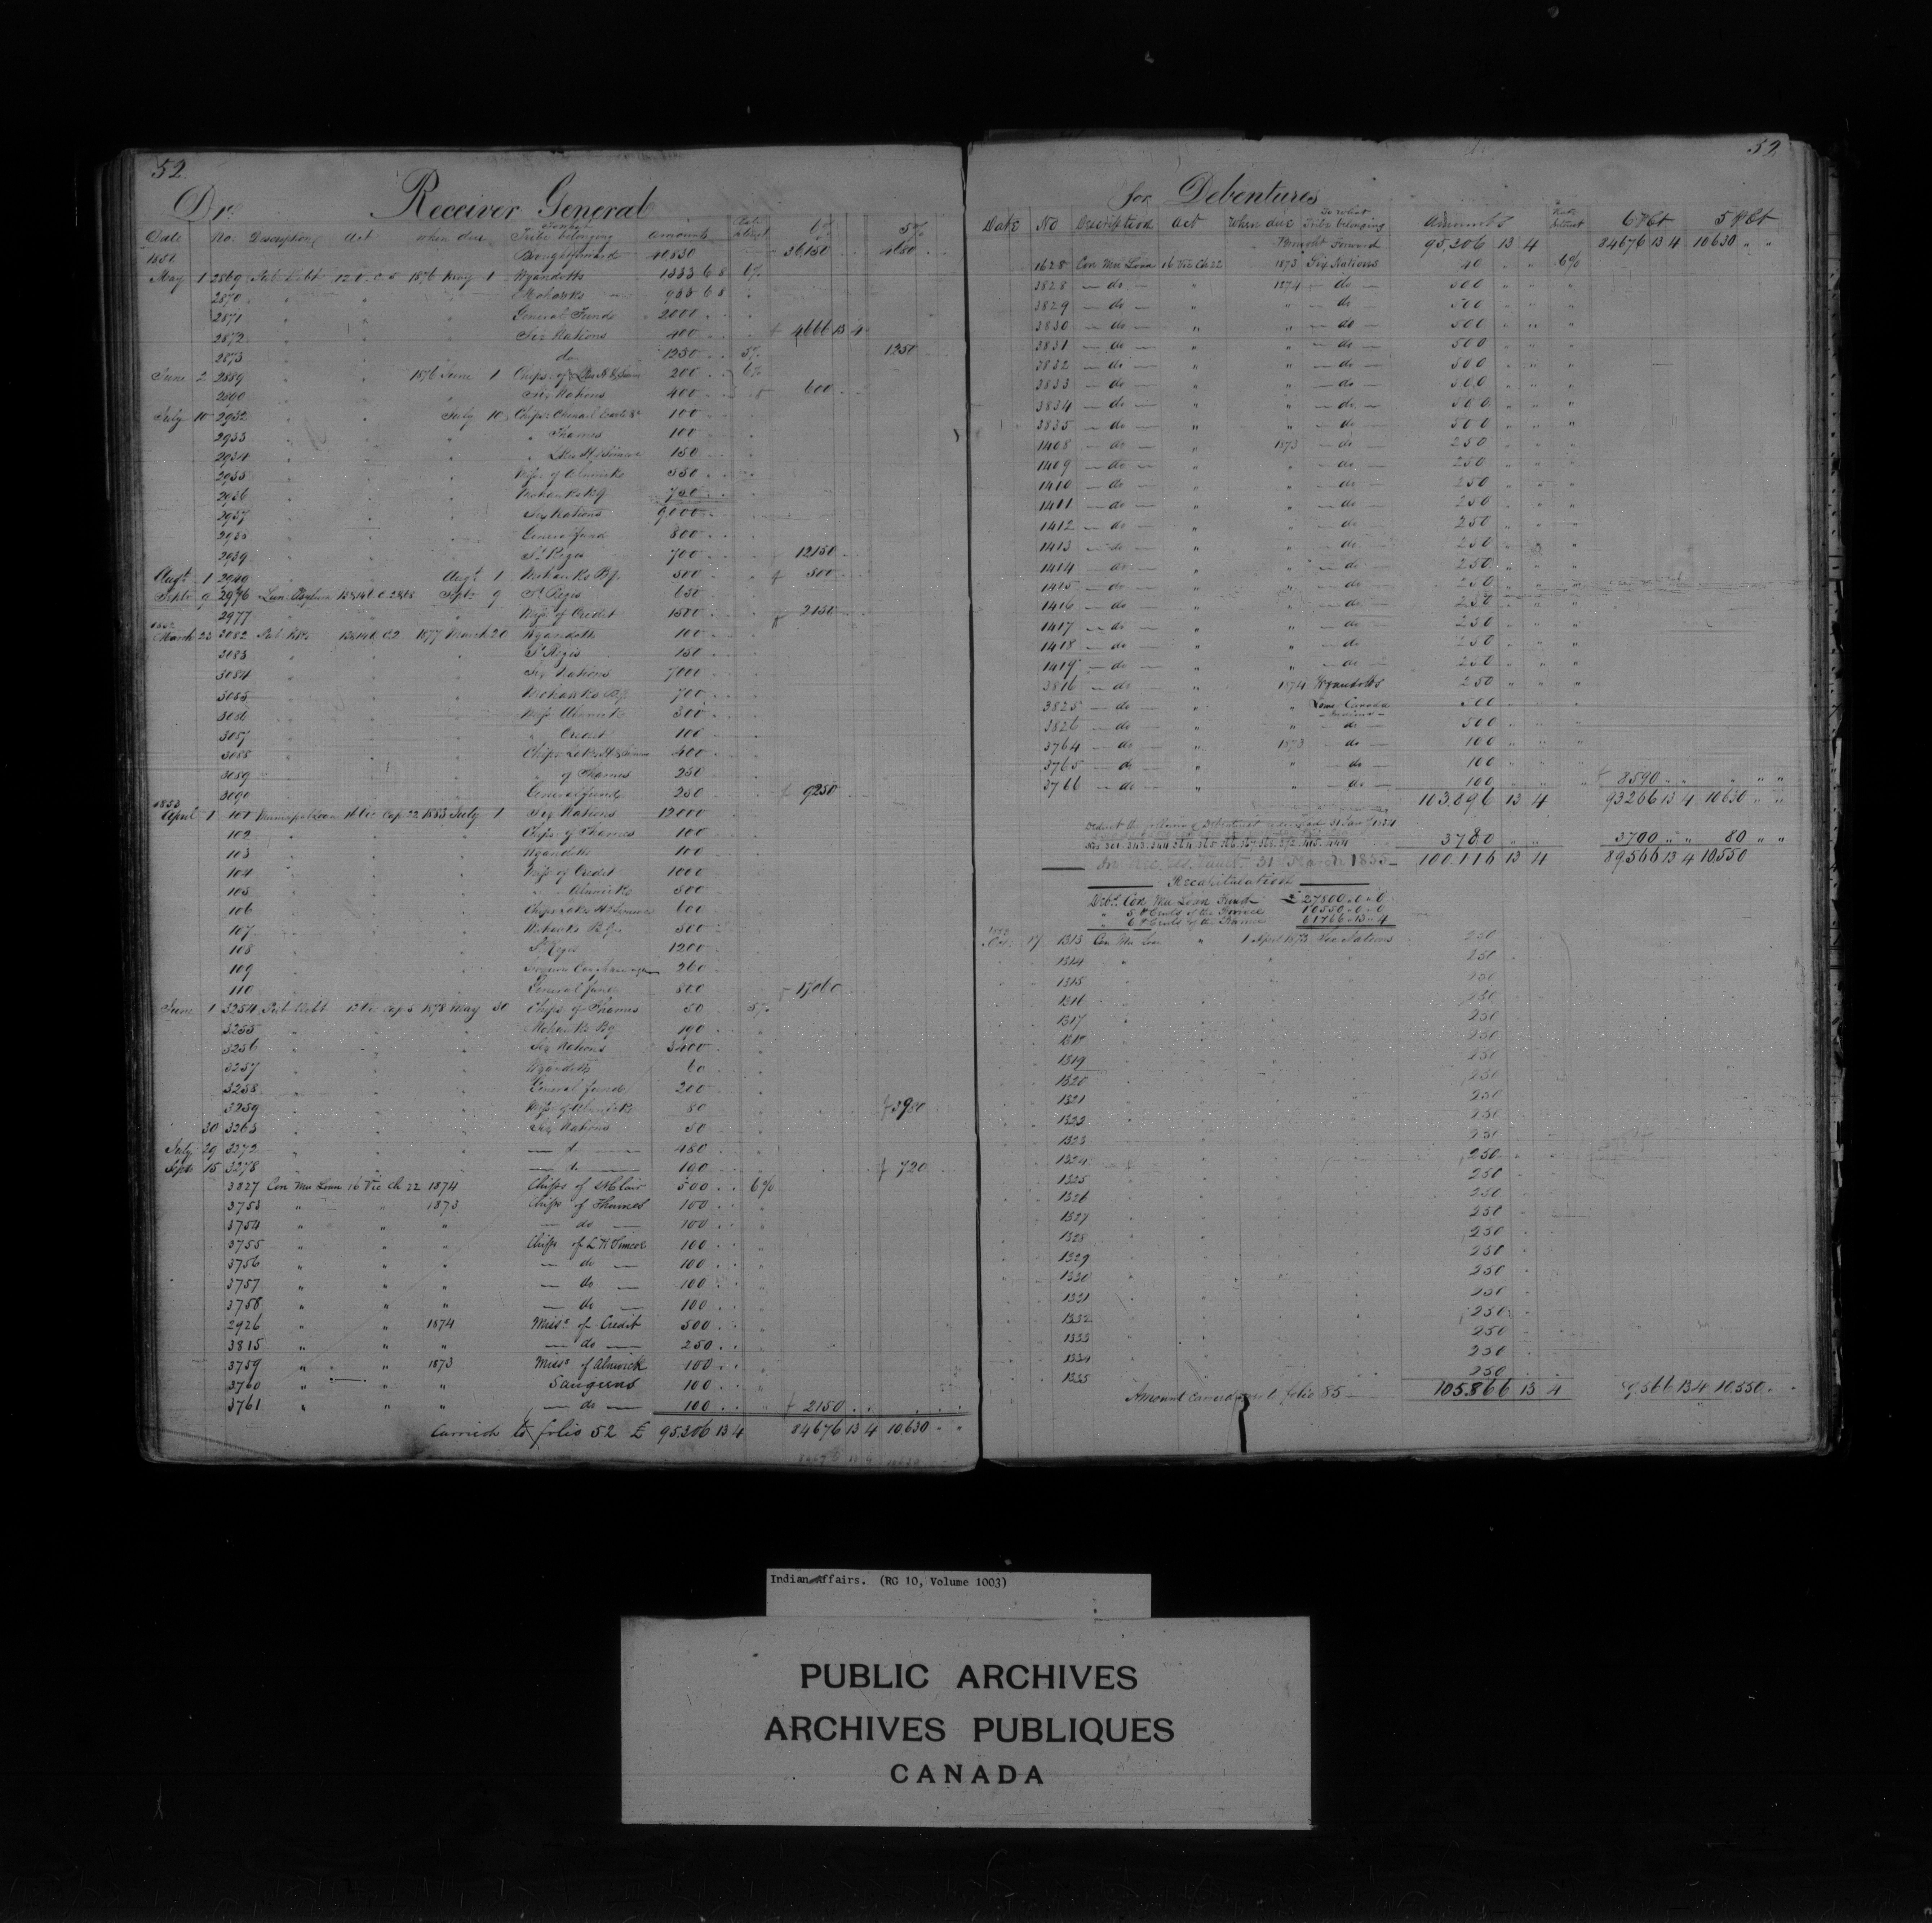 52.
Dr. Receiver General
Date No. Description Act when due To what Tribe belonging amounts Rate Interest 6% 5%
1851 Brought forward 40,830 36,150 4680
May 1 2869 Pub. Debt 12 V. C. 5 1876 May 1 Wyandotts 1333 6 8 6%
2870 " " " Mohawks 933 6 8 "
2871 " " " General Fund 2000 "
2872 " " " Six Nations 400 " 4666 13 4
2873 do 1250 5% 1250
June 2 2889 " " 1876 June 1 Chips. of Lakes H & Simcoe 200 6%
2890 Six Nations 400 600
July 10 2932 " " July 10 Chips. Chenail Ecarte &c 100
2933 " " " " Thames 100
2934 " " " " Lakes H & Simcoe 150
2935 " " " Miss. of Alnwick 550
2936 " " " Mohawks BQ 750
2937 " " " Six Nations 9,000
2938 " " " General fund 800
2939 " " " St. Regis 700 12150
Augt. 1 2949 Augt. 1 Mohawks BQ. 500 500
Septr 9 2976 Lun. Asylum Septr 9 St. Regis 650
2977 Miss. of Credit 1500 2150
1852
March 23 3082 1877 March 20 Wyandotts 100
3083 " " " St. Regis 150
3084 " " " Six Nations 7000
3085 " " " Mohawks BQ 700
3086 " " " Miss. Alnwick 300
3087 " " " " Credit 100
3088 " " " Chips. Lakes H & Simcoe 400
3089 " " " " of Thames 250
3090 " " " General fund 250 9250
1853
April 1 101 Municipal Loan 16 Vic Cap 22 1883 July 1 Six Nations 12000
102 " " " Chips. of Thames 100
103 " " " Wyandotts 100
104 " " " Miss. of Credit 1000
105 " " " " Alnwick 500
106 " " " Chips. Lakes H & Simcoe 600
107 " " " Mohawks B.Q. 500
108 " " " St. Regis 1200
109 " " " 260
110 " " " General fund 800 17060
June 1 3254 Pub. Debt 12 Vic Cap 5 1878 May 30 Chips. of Thames 50 5%
3255 " " " Mohawks BQ 190
3256 " " " Six Nations 3400
3257 " " " Wyandotts 60
3258 " " " General fund 200
3259 " " " Miss. of Alnwick 80 3980
30 3263 " " " Six Nations 50
July 29 3372 " " " — do — 480
Septr 15 3278 " " " — do — 190 720
3827 Con Mu Loan 16 Vic Ch 22 1874 Chipps of St Clair 500 6%
3753 " " 1873 Chipps of Thames 100 "
3754 " " " — do — 100 "
3755 " " " Chipps of L H Simcoe 100 "
3756 " " " — do — 100 "
3757 " " " — do — 100 "
3758 " " " — do — 100 "
2926 " " 1874 Misss. of Credit 500 "
3815 " " " — do — 250 "
3759 " " 1873 Misss. of Alnwick 100 "
3760 " " " Saugeens 100 "
3761 " " " — do — 100 " 2150
Carried to folio 52 £ 95.206 13 4 84676 13 4 10,630
84676 13 4 10630
52
for Debentures
Date No Description Act When due To What Tribe belonging Amounts Rate Interest 6 P Ct 5 P Ct
Brought Forward 95,206 13 4 84676 13 4 10630 " "
1628 Con Mu Loan 16 Vic Ch 22 1873 Six Nations 40 " " 6%
3828 — do — " 1874 — do — 500 " " "
3829 — do — " " — do — 500 " " "
3830 — do — " " — do — 500 " " "
3831 — do — " " — do — 500 " " "
3832 — do — " " — do — 500 " " "
3833 — do — " " — do — 500 " " "
3834 — do — " " — do — 500 " " "
3835 — do — " " — do — 500 " " "
1408 — do — " 1873 — do — 250 " " "
1409 — do — " " — do — 250 " " "
1410 — do — " " — do — 250 " " "
1411 — do — " " — do — 250 " " "
1412 — do — " " — do — 250 " " "
1413 — do — " " — do — 250 " " "
1414 — do — " " — do — 250 " " "
1415 — do — " " — do — 250 " " "
1416 — do — " " — do — 250 " " "
1417 — do — " " — do — 250 " " "
1418 — do — " " — do — 250 " " "
1419 — do — " " — do — 250 " " "
3816 — do — " 1874 Wyandotts 250 " " "
3825 — do — " " Lower Canada Indians 500 " " "
3826 — do — " " — do — 500 " " "
3764 — do — " 1873 — do — 100 " " "
3765 — do — " " — do — 100 " " "
3766 — do — " " — do — 100 " " " 8590 " " " " "
103,896 13 4 93266 13 4 10630 " "
Deduct the following Debentures redeemed 31 Jany 1854
3780 " " 3700 " " 80 " "
In Rec. Gel. Vault 31 March 1855 100.116 13 4 89,566 13 4 10550
Recapitulation
Debs. Con Mu Loan Fund £ 27800 " 0 " 0
" 5 P Cents of the Province 10550 " 0 " 0
" 6 P Cents of the Province 61766 " 13 " 4
17 1313 Con Mu Loan " 1 April 1873 Six Nations 250
1314 " " " " 250
1315 250
1316 250
1317 250
1318 250
1319 250
1320 250
1321 250
1322 250
1323 250
1324 250
1325 250
1326 250
1327 250
1328 250
1329 250
1330 250
1331 250
1332 250
1333 250
1334 250
1335 250
Amount carried to folio 85 105.866 13 4 89,566 13 4 10,550
Indian Affairs. (RG 10, Volume 1003)
PUBLIC ARCHIVES
ARCHIVES PUBLIQUES
CANADA